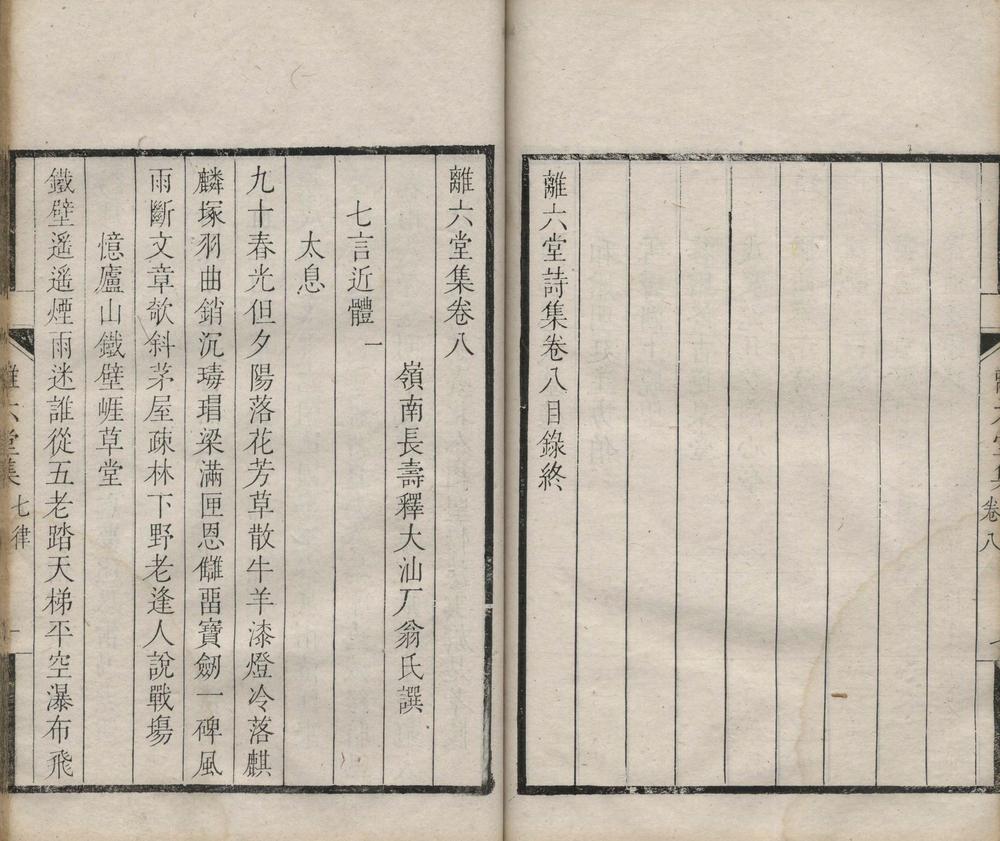 離六堂詩集卷八目錄終
離六堂集 卷八
離六堂集卷八
嶺南長壽釋大汕厂翁氏譔
七言近體一
太息
九十春光但夕陽落花芳草散牛羊漆燈冷落麒
麟塚羽曲銷沉瑇瑁梁滿匣恩讎畱寶劒一碑風
雨斷文章欹斜茅屋疎林下野老逢人說戰塲
憶廬山鐵壁崕草堂
鐵壁遥遥煙雨迷誰從五老踏天梯平空瀑布飛
離六堂集 七律 一